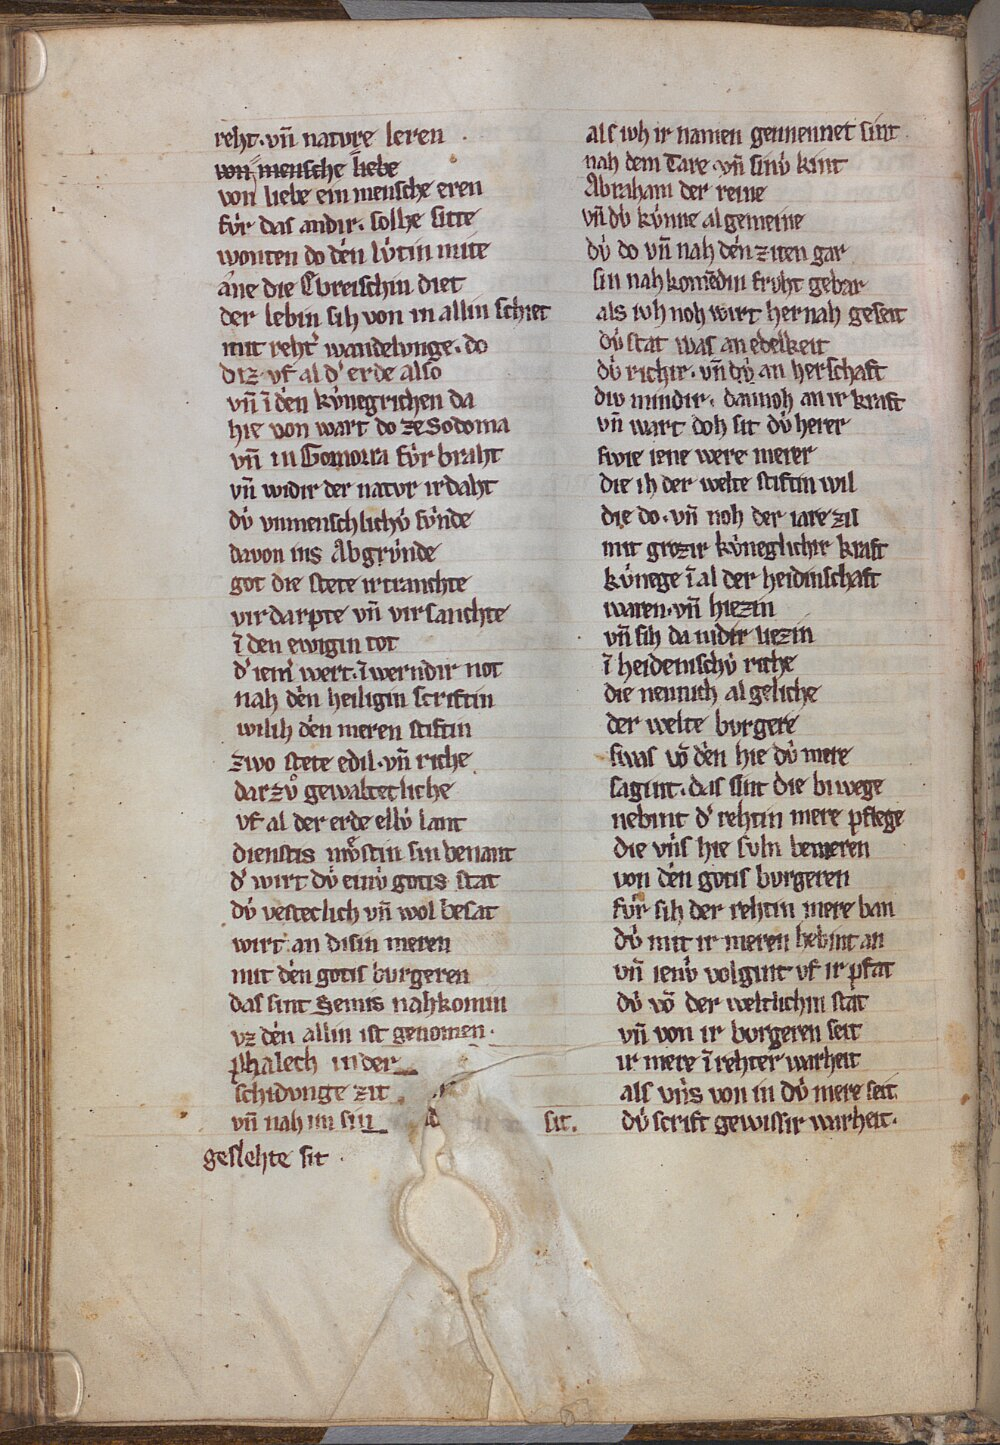 reht. vn̄ natvre leren
von mensche liebe
von liebe ein mensche eren
fv́r das andir. solhe sitte
wonten do dēn lv́tin mite
ane die Ebreischin diet
der lebin sih von in allin schiet
mit reht' wandelvnge. do
diz vf al d' erde also
vn̄ ī dēn kv́negrichen da
hie von wart do ze Sodoma
vn̄ in Gomorra fv́r braht
vn̄ widir der natvr irdaht
dv́ vnmenschlichv́ sv́nde
davon ins Abgrv́nde
got die stete irtranchte
virdarpte vn̄ virsanchte
ī den ewigin tot
d' iem' wert. ī werndir not
nah dēn heiligin scriftin
wil ih dēn meren stiftin
zwo stete edil. vn̄ riche
darzv̊ gewaltecliche
vf al der erde ellv́ lant
dienstis mv̊stin sin benant
d' wirt dv́ einv́ gotis stat
dv́ vesteclich vn̄ wol besat
wirt an disin meren
mit dēn gotis burgeren
das sint Semis nahkomin
vz dēn allin ist genomen.
phalech in der
schidvnge zit
vn̄ nah im sin sit.
geslehte sit .
als ivh ir namen gennennet sint
nah dem Tare. vn̄ sinv́ kint
Abraham der reine
vn̄ dv́ kv́nne algemeine
dv́ do vn̄ nah dēn ziten gar
sin nahkomēdin frvht gebar
als ivh noh wirt her nah geseit
dv́ stat was an edelkeit
dv́ richir. vn̄ dv́ an herschaft
div mindir. dannoh an ir kraft
vn̄ wart doh sit dv́ herer
swie iene were merer
die ih der welte stiftin wil
die do. vn̄ noh der iare zil
mit grozir kv́neglichir kraft
kv́nege ī al der heidinschaft
waren. vn̄ hiezin
vn̄ sih da nidir liezin
ī heidenischv́ riche
die nenn ich al geliche
der welte bvrgere
swas vō dēn hie dv́ mere
sagint. das sint die biwege
nebint d' rehtin mere pflege
die vn̄s hie svln bemeren
von dēn gotis bvrgeren
fv́r sih der rehtin mere ban
dv́ mit ir meren hebint an
vn̄ ienv́ volgint vf ir pfat
dv́ vō der weltlichin stat
vn̄ von ir borgeren seit
ir mere ī rehter warheit
als vn̄s von in dv́ mere seit
dv́ scrift gewissir warheit.